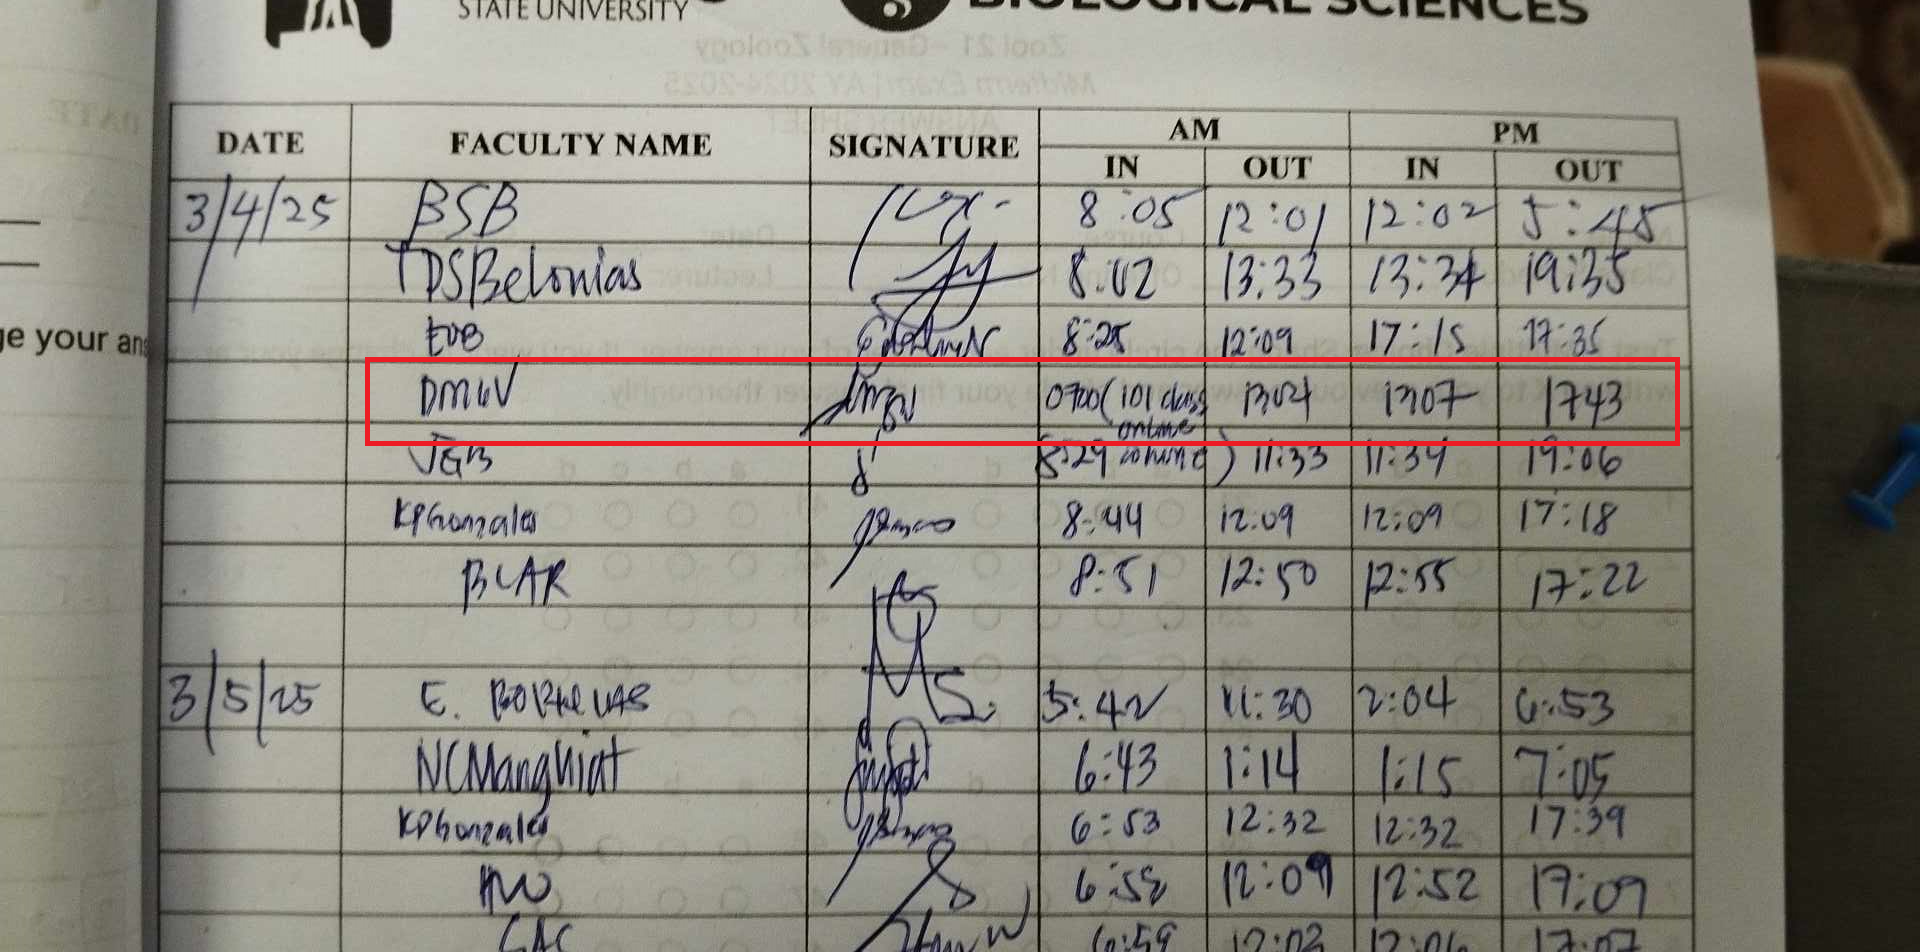 STATE UNIVERSITY
BIOLOGICAL SCIENCES
Zool 21 - General Zoology
Midterm Exam | AY 2024-2025
ANSWER SHEET
DATE FACULTY NAME SIGNATURE AM PM
IN OUT IN OUT
3/4/25 BSB 8:05 12:01 12:02 5:45
TDSBelonias 8:02 13:33 13:34 19:35
EVB 8:25 12:09 17:15 17:35
ge your ans
DMGV 0700 (101 class 1304 1307 1743
online
JGB 8:29 coming) 11:33 11:34 19:06
KPGonzales 8:44 12:09 12:09 17:18
BLAR 8:51 12:50 12:55 17:22
3/5/25 E. 5:42 11:30 2:04 6:53
NCManghiat 6:43 1:14 1:15 7:05
KPGonzales 6:53 12:32 12:32 17:39
6:58 12:09 12:52 17:09
6:59 12:03 12:06 17:07